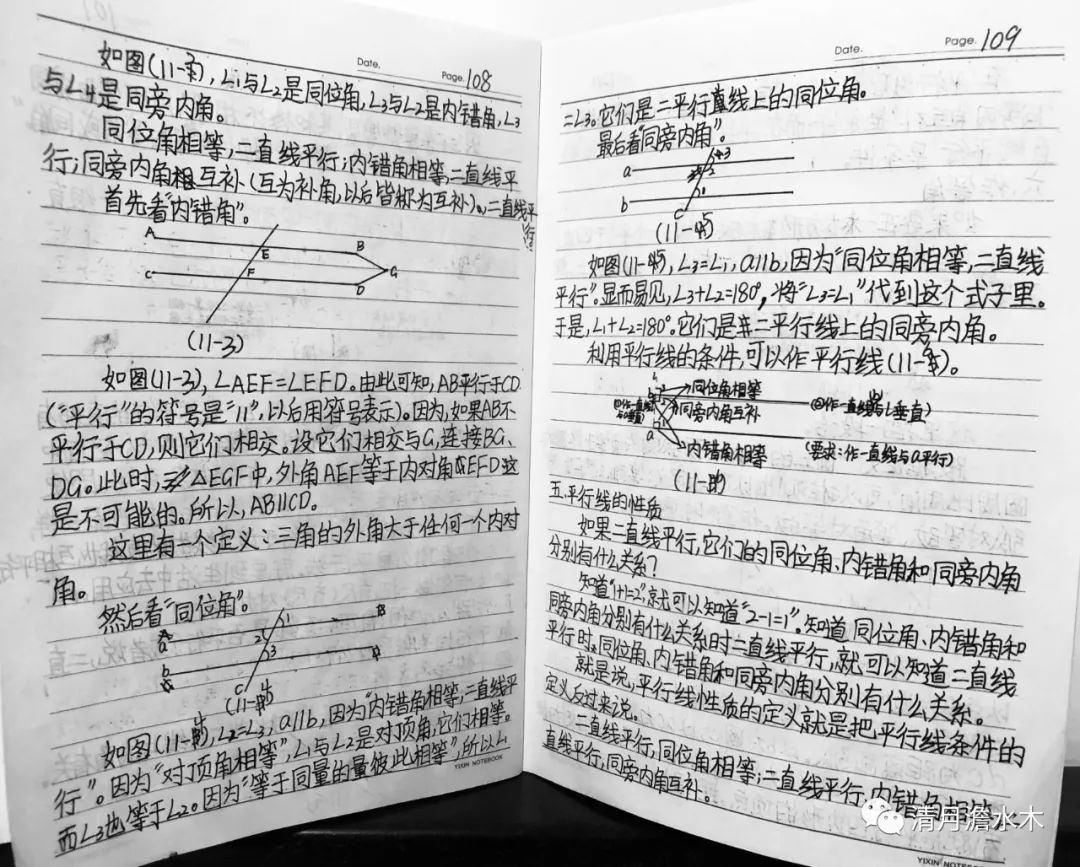 Date.
Page. 108
如图(11-2), L1与L2是同位角,L3与L2是内错角,L3
与L4是同旁内角。
同位角相等,二直线平行;内错角相等,二直线平
行;同旁内角互补(互为补角,以后皆称为互补)。,二直线平
行。
首先看“内错角”。
A
E
B
C
F
D
G
(11-3)
如图(11-3), ∠AEF=∠EFD。由此可知, AB平行于CD
(“平行”的符号是“11”,以后用符号表示)。因为,如果AB不
平行于CD,则它们相交。设它们相交与G,连接BG、
DG。此时, △EGF中,外角AEF等于内对角EFD这
是不可能的。所以, AB11CD。
这里有一个定义:三角的外角大于任何一个内对
角。
然后看“同位角”。
a
b
1
2
3
B
C
(11-4)
如图(11-4), L2=L3, a11b,因为“内错角相等,二直线平
行”。因为“对顶角相等”, L1与L2是对顶角,它们相等。
而L3也等于L2。因为“等于同量的量彼此相等”,所以L1
YIXIN NOTEBOOK
Date.
Page. 109
=L3。它们是二平行直线上的同位角。
最后看“同旁内角”。
a
b
3
2
1
C
(11-5)
如图(11-5), L3=L1, a11b,因为“同位角相等,二直线
平行”。显而易见, L3+L2=180°,将“L3=L1”代到这个式子里。
于是, L1+L2=180°。它们是二平行线上的同旁内角。
利用平行线的条件,可以作平行线(11-6)。
同位角相等
同旁内角互补
内错角相等
(②作一直线与L垂直)
(要求:作一直线与a平行)
a
五.平行线的性质
如果二直线平行,它们的同位角、内错角和同旁内角
分别有什么关系?
知道“1+1=2”,就可以知道“2-1=1”。知道同位角、内错角和
同旁内角分别有什么关系时二直线平行,就可以知道二直线
平行时,同位角、内错角和同旁内角分别有什么关系。
就是说,平行线性质的定义就是把平行线条件的
定义反过来说。
二直线平行,同位角相等;二直线平行,内错角相等;
直线平行,同旁内角互补。
清月澹水木
YIXIN NOTEBOOK